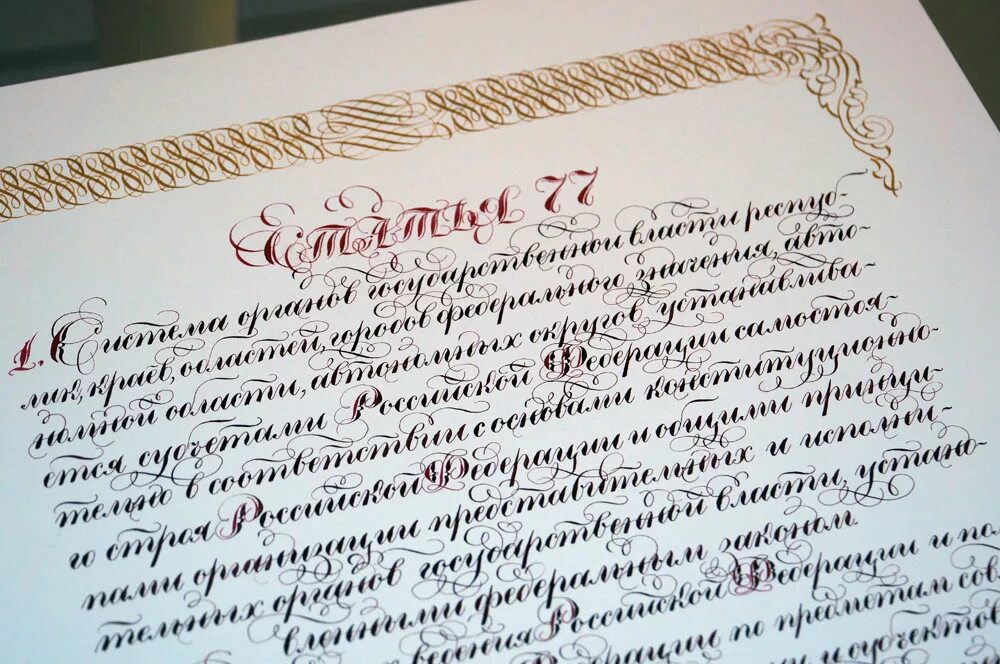 Статья 77
1. Система органов государственной власти респуб-
лик, краев, областей, городов федерального значения, авто-
номной области, автономных округов устанавлива-
ется субъетами Российской Федерации самостоя-
тельно в соответствии с основами конституционно-
го строя Российской Федерации и общими принци-
пами организации представительных и исполни-
тельных органов государственной власти, устано-
вленными федеральным законом.
ведения Российской Федерации и пол
по предметам сов